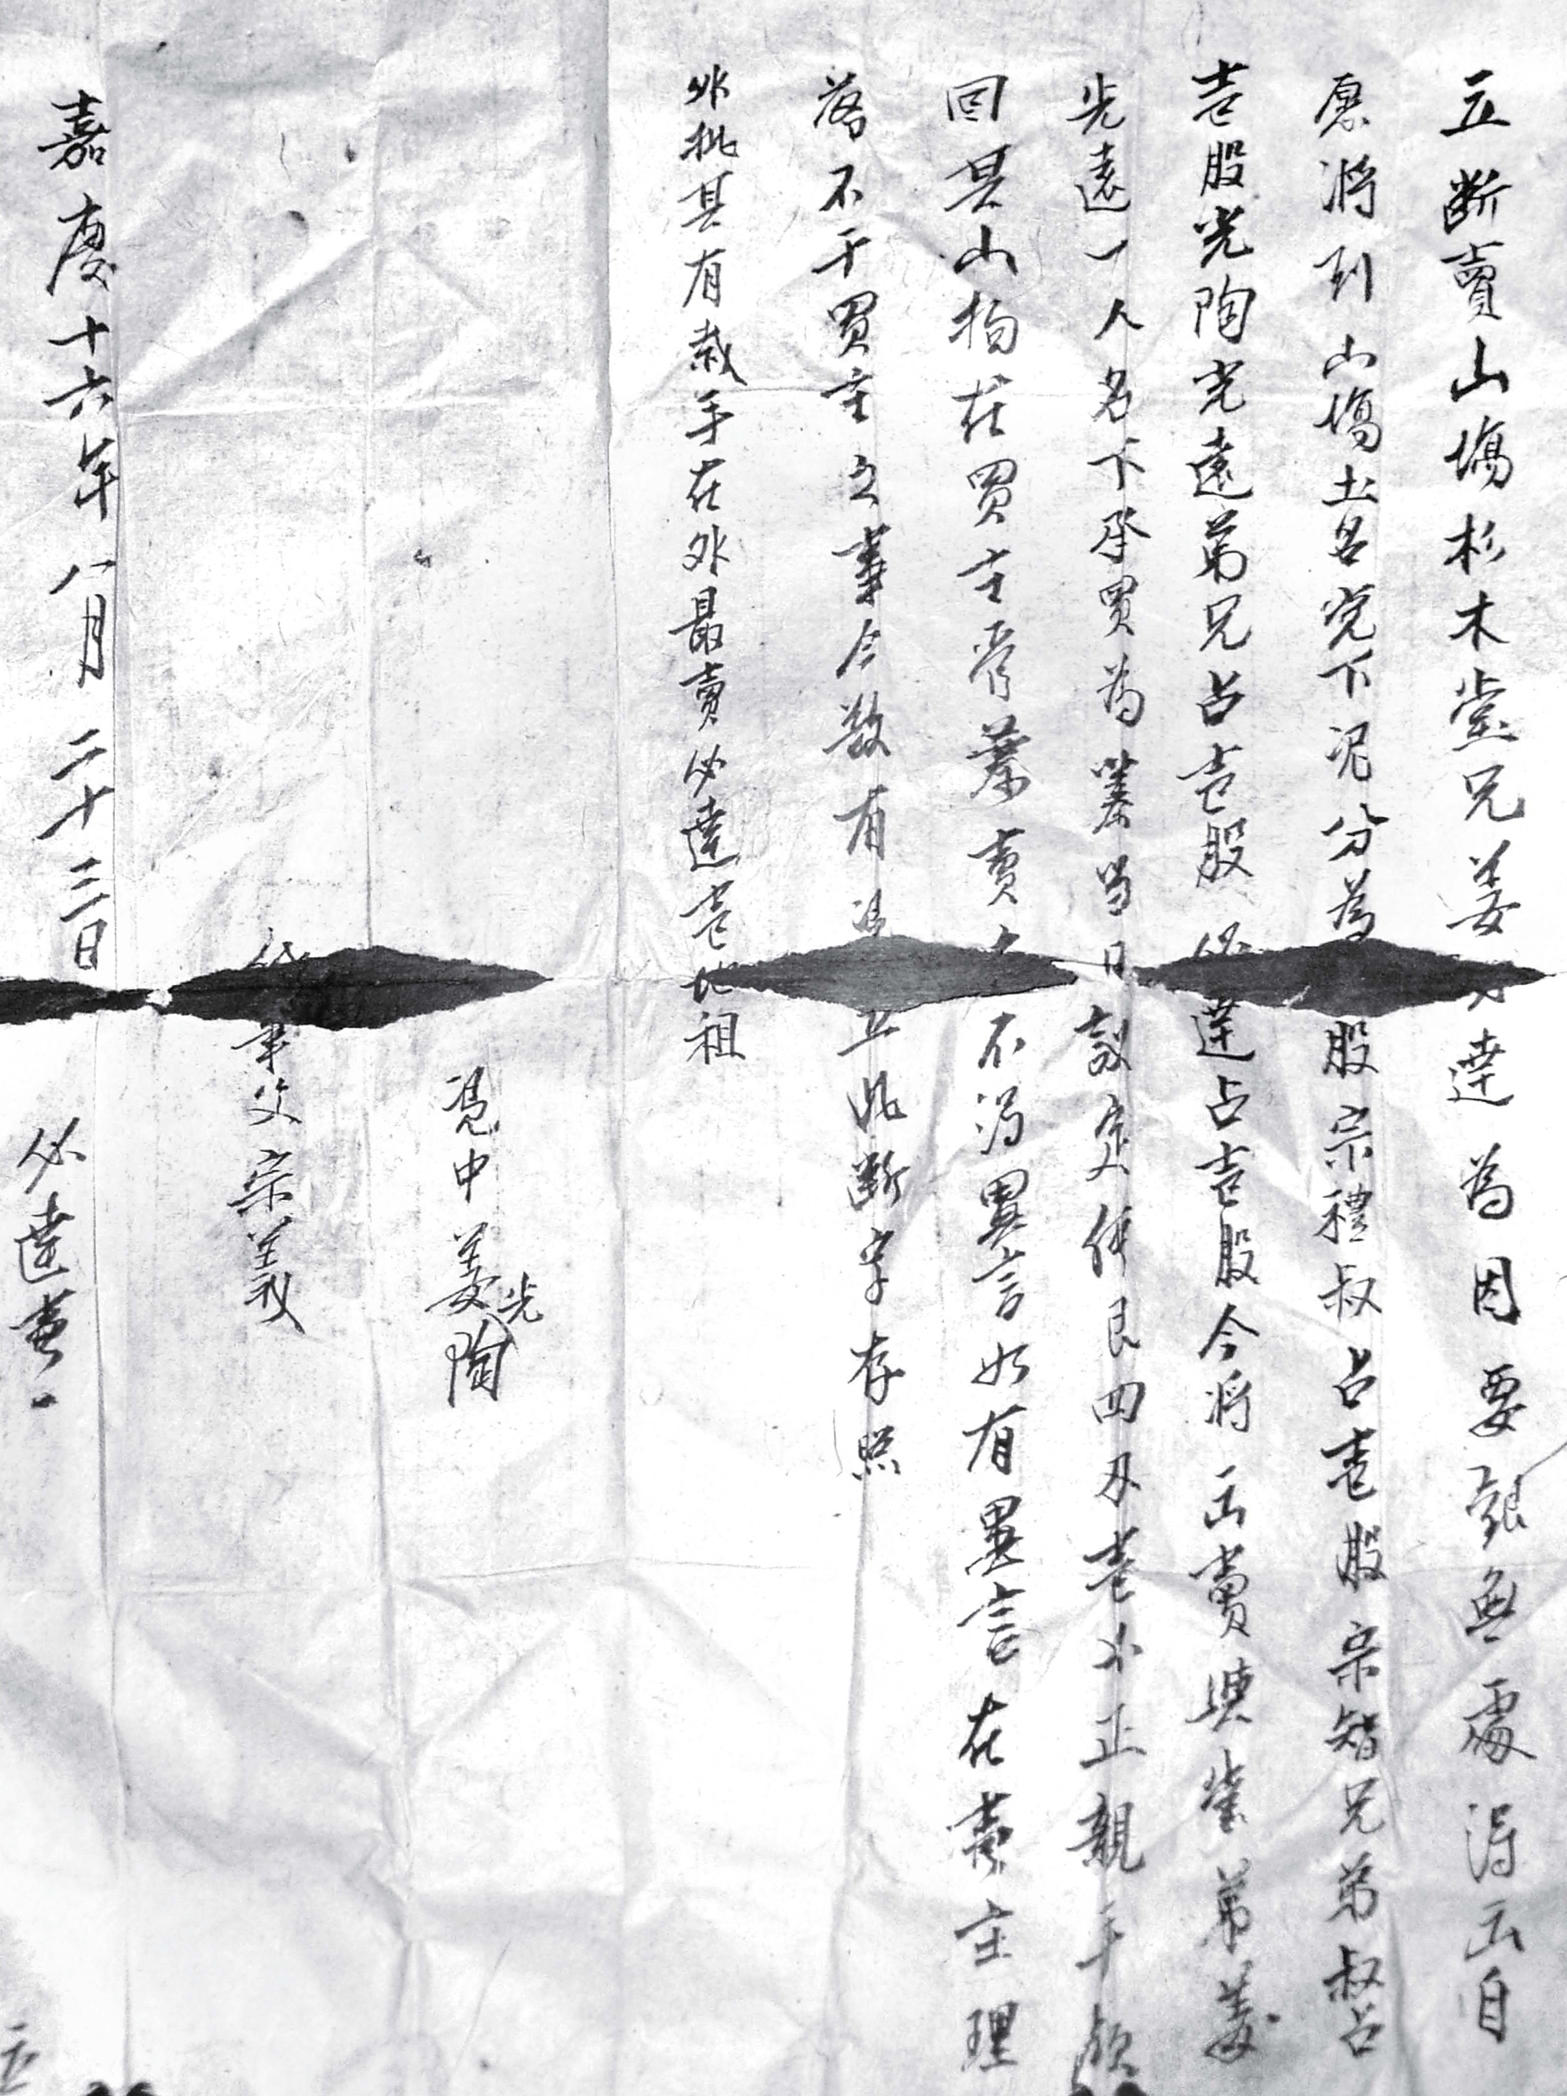 立断賣山塲杉木堂兄姜必達為因要銀無處淂出自
愿将到山塲土名党下泥分為股宗禮叔占壱股宗智兄弟叔占
壱股光陶光遠弟兄占壱股必達占壱股今将出賣與堂弟姜
光遠一人名下承買為業当日議定價艮四両壱小正親手領
回其山拘在買主管業賣不淂異言如有異言在賣主理
落不干買主之事今欲有憑立此断字存照
外批其有栽手在外最賣必達壱地租
憑中姜光陶
代筆父宗義
嘉慶十六年八月二十三日 必達賣
立